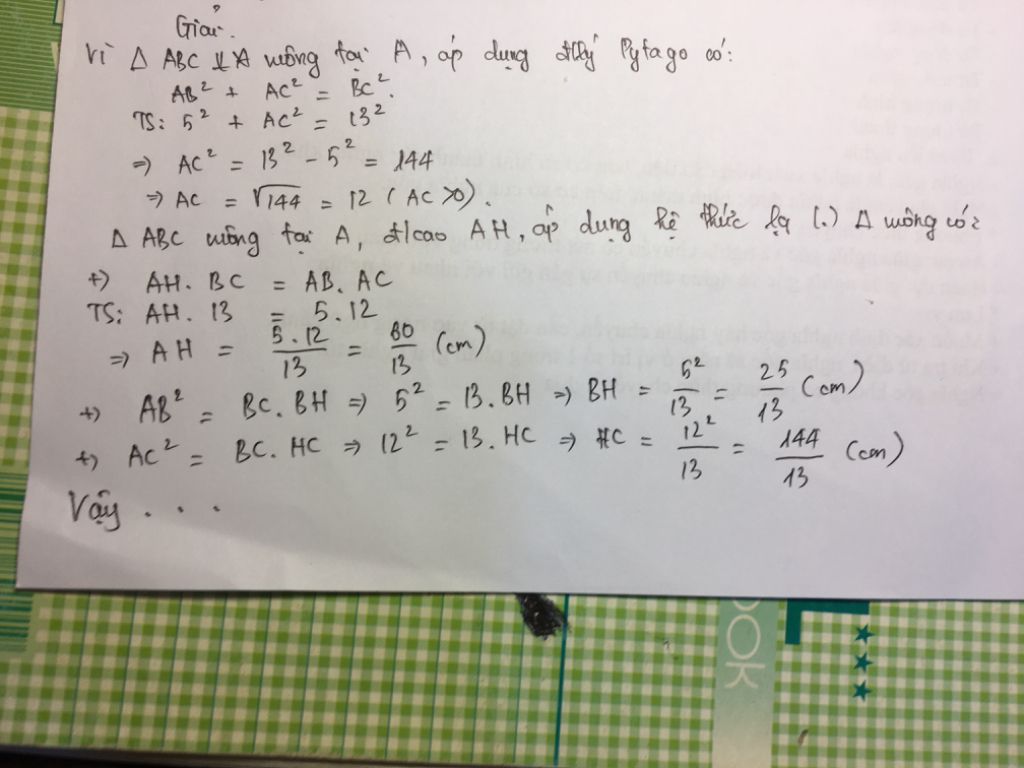 Giải.
Vì Δ ABC vuông tại A, áp dụng đlý Pytago có:
AB² + AC² = BC².
TS: 5² + AC² = 13²
⇒ AC² = 13² - 5² = 144
⇒ AC = √144 = 12 (AC>0).
Δ ABC vuông tại A, đ/cao AH, áp dụng hệ thức lg (.) Δ vuông có:
+) AH. BC = AB. AC
TS: AH. 13 = 5.12
⇒ AH = 5.12/13 = 60/13 (cm)
+) AB² = BC. BH ⇒ 5² = 13. BH ⇒ BH = 5²/13 = 25/13 (cm)
+) AC² = BC. HC ⇒ 12² = 13. HC ⇒ HC = 12²/13 = 144/13 (cm)
Vậy . . .
OOK